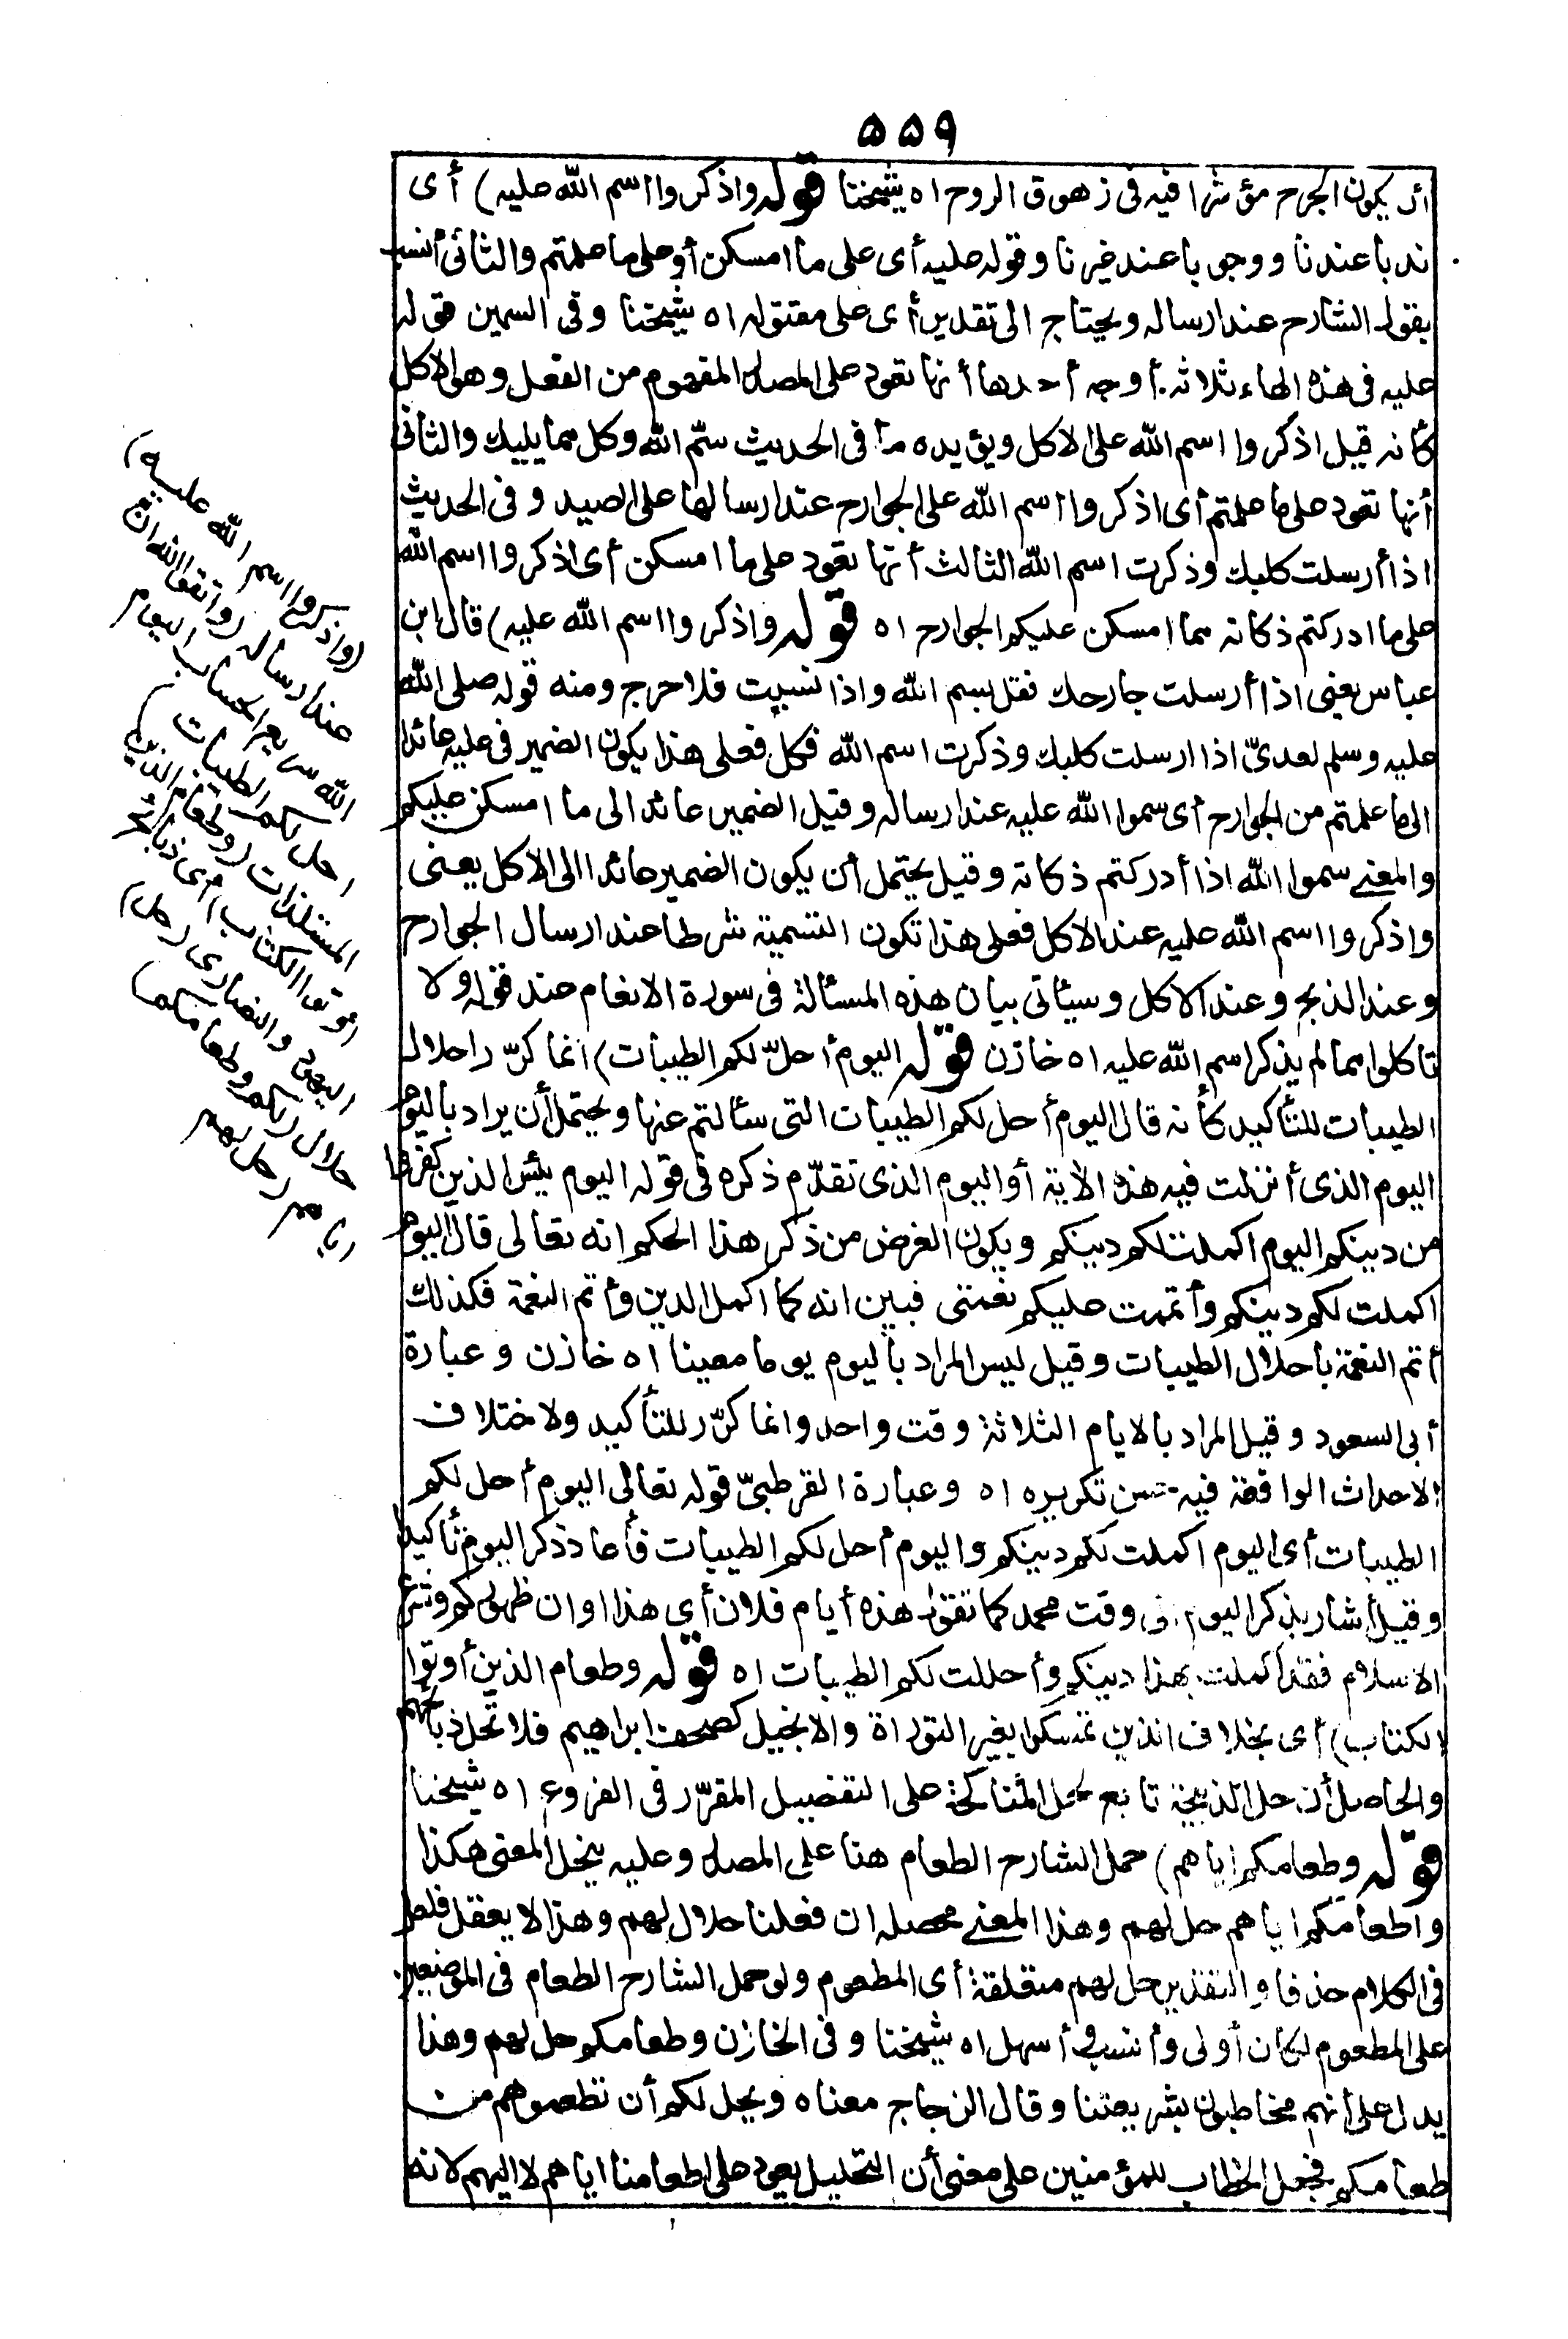 ۵۵۹
ان يكون الجرح مؤثرا فيه فى زهوق الروح اه شيخنا قوله واذكروا اسم الله عليه) أى
ندبا عندنا ووجوبا عند غيرنا وقوله عليه أى على ما امسكن أو على ما علمتم والثانى أنسب
بقول الشارح عند ارساله ويحتاج الى تقدير أى على مقتوله اه شيخنا وفى السمين قوله
عليه فى هذه الهاء ثلاثة أوجه أحدها أنها تعود على المصدر المفهوم من الفعل وهو الاكل
كأنه قيل اذكروا اسم الله على الاكل ويؤيده ما فى الحديث سمّ الله وكل مما يليك والثانى
أنها تعود على ما علمتم أى اذكروا اسم الله على الجوارح عند ارسالها على الصيد وفى الحديث
اذا أرسلت كلبك وذكرت اسم الله الثالث أنها تعود على ما امسكن أى اذكروا اسم الله
على ما ادركتم ذكاته مما امسكن عليكم الجوارح اه قوله واذكروا اسم الله عليه) قال ابن
عباس يعنى اذا أرسلت جارحك فقل بسم الله واذا نسيت فلا حرج ومنه قوله صلى الله
عليه وسلم لعدىّ اذا ارسلت كلبك وذكرت اسم الله فكل فعلى هذا يكون الضمير فى عليه عائدا
الى ما علمتم من الجوارح أى سموا الله عليه عند ارساله وقيل الضمير عائد الى ما امسكن عليكم
والمعنى سموا الله اذا أدركتم ذكاته وقيل يحتمل أن يكون الضمير عائدا الى الاكل يعنى
واذكروا اسم الله عليه عند الاكل فعلى هذا تكون التسمية شرطا عند ارسال الجوارح
وعند الذبح وعند الاكل وسيأتى بيان هذه المسألة فى سورة الانعام عند قوله ولا
تاكلوا مما لم يذكر اسم الله عليه اه خازن قوله اليوم أحلّ لكم الطيبات) انما كرّر احلال
الطيبات للتأكيد كأنه قال اليوم أحل لكم الطيبات التى سألتم عنها ويحتمل أن يراد باليوم
اليوم الذى أنزلت فيه هذه الأية أو اليوم الذى تقدّم ذكره فى قوله اليوم يئس الذين كفروا
من دينكم اليوم اكملت لكم دينكم ويكون الغرض من ذكر هذا الحكم انه تعالى قال اليوم
اكملت لكم دينكم وأتممت عليكم نعمتى فبين انه كما اكمل الدين وأتم النعمة فكذلك
أتم النعمة باحلال الطيبات وقيل ليس المراد باليوم يوما معينا اه خازن وعبارة
أبى السعود وقيل المراد بالايام الثلاثة وقت واحد وانما كرّر للتأكيد ولاختلاف
الاحداث الواقعة فيه حسن تكريره اه وعبارة القرطبىّ قوله تعالى اليوم أحل لكم
الطيبات أى اليوم اكملت لكم دينكم واليوم أحل لكم الطيبات فأعاد ذكر اليوم تأكيدا
وقيل أشار بذكر اليوم الى وقت محمد كما تقول هذه أيام فلان أى هذا اوان ظهوركم وشرع
الاسلام فقد أكملت بهذا دينكم وأحللت لكم الطيبات اه قوله وطعام الذين أوتوا
الكتاب) أى بخلاف الذين تمسكوا بغير التوراة والانجيل كصحف ابراهيم فلا تحل ذبائحهم
والحاصل أن حل الذبيحة تابع لحل المناكحة على التفصيل المقرّر فى الفروع اه شيخنا
قوله وطعامكم اياهم) حمل الشارح الطعام هنا على المصدر وعليه ينحل المعنى هكذا
واطعامكم اياهم حل لهم وهذا المعنى محصله ان فعلنا حلال لهم وهذا لا يعقل فلعل
فى الكلام حذفا والتقدير حل لهم متعلقة أى المطعوم ولو حمل الشارح الطعام فى الموضعين
على المطعوم لكان أولى وأنسب وأسهل اه شيخنا وفى الخازن وطعامكم حل لهم وهذا
يدل على أنهم مخاطبون بشريعتنا وقال الزجاج معناه ويحل لكم أن تطعموهم من
طعامكم فجعل الخطاب للمؤمنين على معنى أن التحليل يعود على اطعامنا اياهم لا اليهم لانه
(واذكروا اسم الله عليه)
عند ارساله (واتقوا الله ان
الله سريع الحساب اليوم
احل لكم الطيبات)
المستلذات (وطعام الذين
اوتوا الكتاب) أى ذبائح
اليهود والنصارى (حل)
حلال (لكم وطعامكم)
اياهم (حل لهم